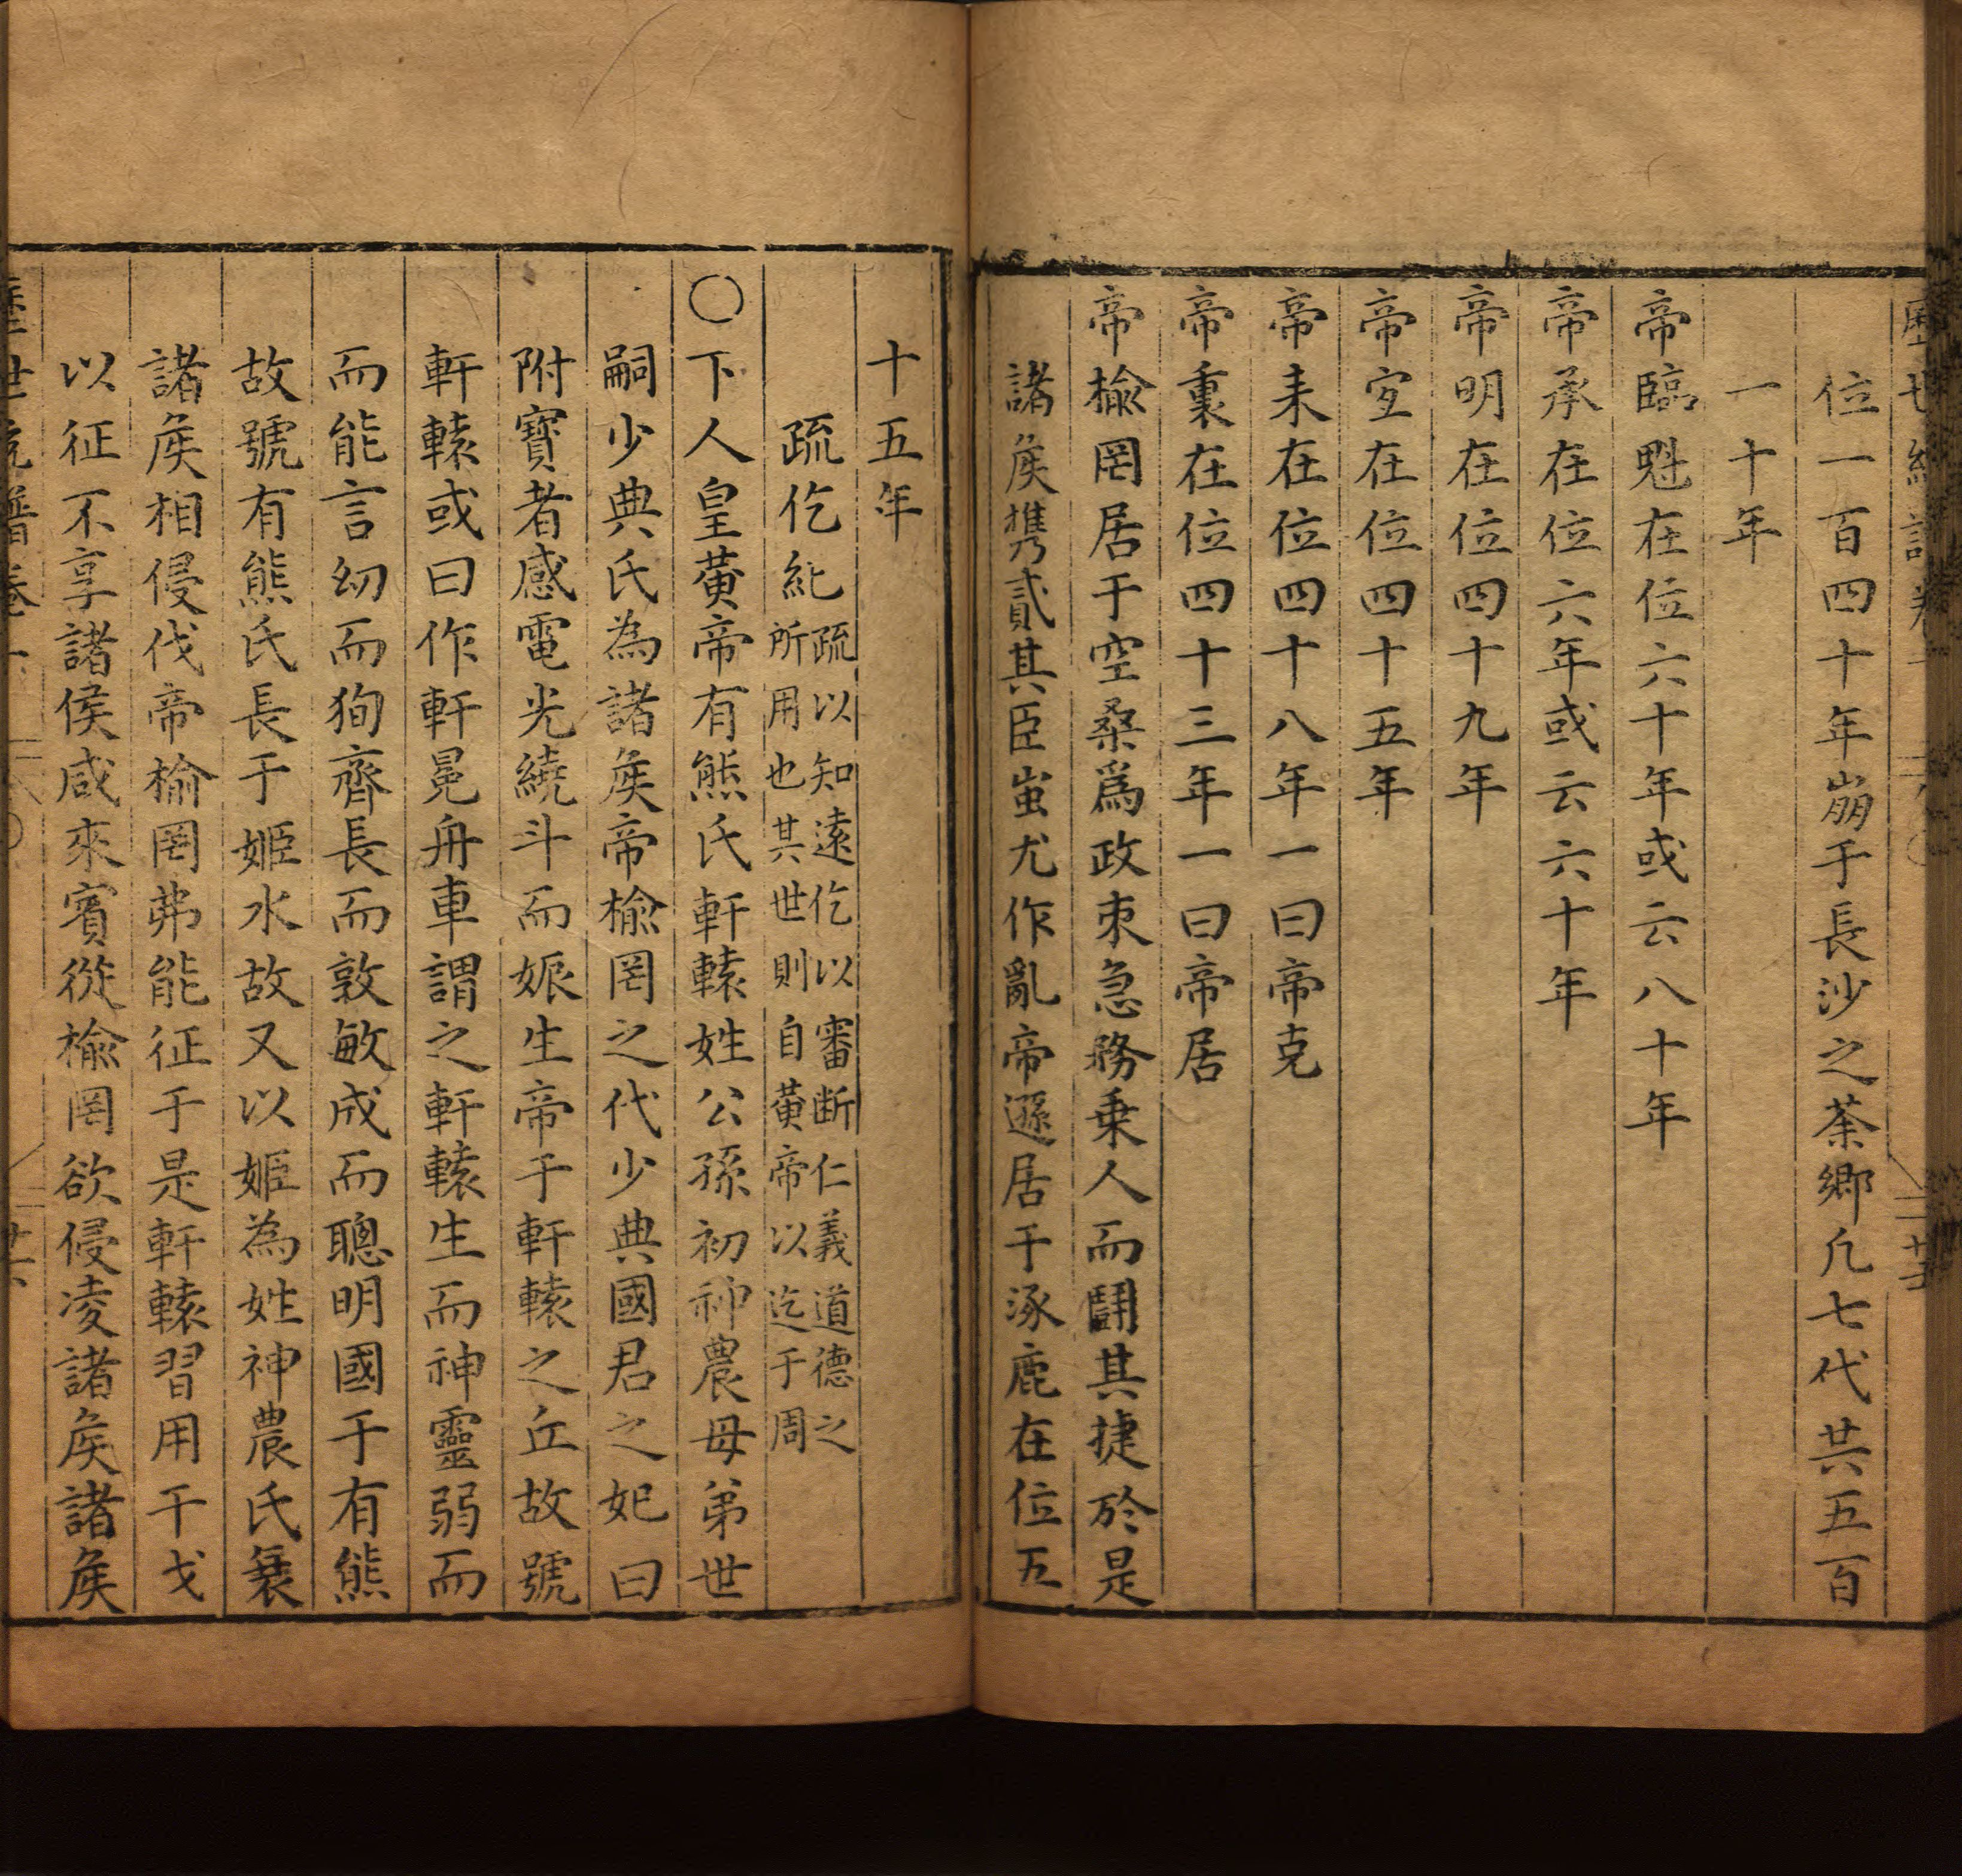 位一百四十年崩于長沙之茶鄉凡七代共五百
一十年
帝臨魁在位六十年或云八十年
帝承在位六年或云六十年
帝明在位四十九年
帝宜在位四十五年
帝耒在位四十八年一曰帝克
帝裏在位四十三年一曰帝居
帝榆罔居于空桑爲政朿急務乗人而鬪其捷於是
諸矦携貳其臣蚩尤作亂帝遜居于涿鹿在位五
十五年
疏仡紀
疏以知遠仡以審断仁義道德之
所用也其世則自黄帝以迄于周
〇下人皇黄帝有熊氏軒轅姓公孫初神農母弟世
嗣少典氏為諸矦帝榆罔之代少典國君之妃曰
附寶者感電光繞斗而娠生帝于軒轅之丘故號
軒轅或曰作軒冕舟車謂之軒轅生而神靈弱而
而能言幼而狥齊長而敦敏成而聰明國于有熊
故號有熊氏長于姬水故又以姬為姓神農氏衰
諸矦相侵伐帝榆罔弗能征于是軒轅習用干戈
以征不享諸侯咸來賓從榆罔欲侵凌諸矦諸矦